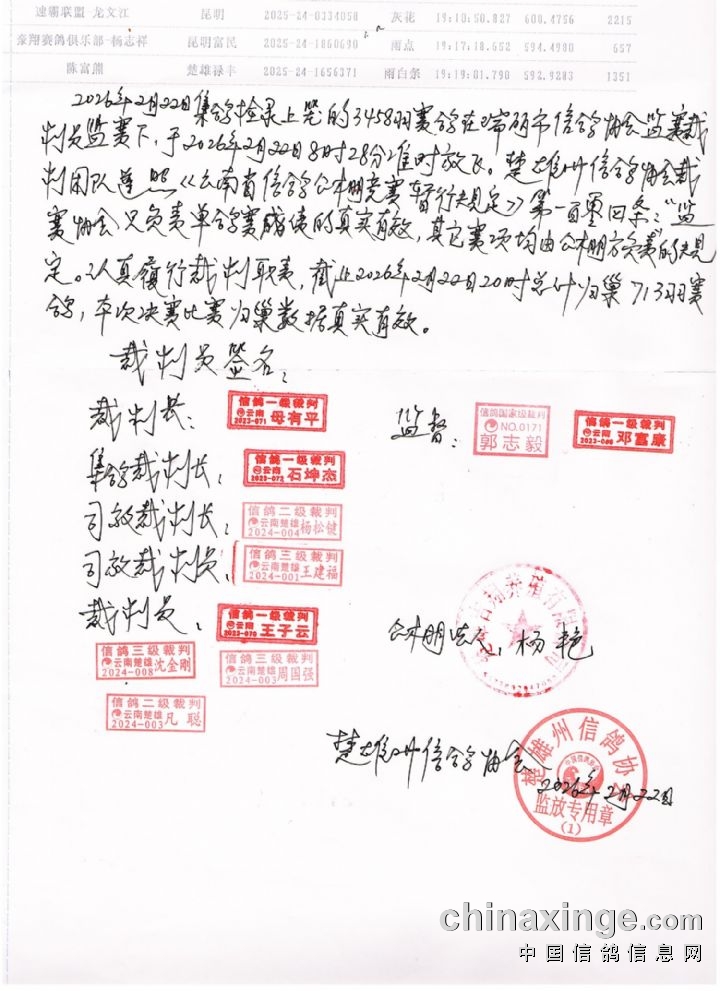 速霸联盟-龙文江 昆明 2025-24-0334058 灰花 19:10:50.827 600.4756 2215
豪翔赛鸽俱乐部-杨志祥 昆明富民 2025-24-1860690 雨点 19:17:18.652 594.4980 657
陈富熊 楚雄禄丰 2025-24-1656371 雨白条 19:19:01.790 592.9283 1351
2026年2月22日集鸽检录上笼的3458羽赛鸽在瑞丽市信鸽协会监赛裁
判员监赛下,于2026年2月22日8时28分准时放飞。楚雄州信鸽协会裁
判团队遵照《云南省信鸽公棚竞赛暂行规定》第一百零四条:“监
赛协会只负责单鸽赛成绩的真实有效,其它赛项均由公棚方负责”的规
定。认真履行裁判职责,截止2026年2月22日20时总计归巢713羽赛
鸽,本次决赛比赛归巢数据真实有效。
裁判员签名:
裁判长: 信鸽一级裁判 云南 2023-071 母有平
监督: 信鸽国家级裁判 NO.0171 郭志毅 信鸽一级裁判 云南 邓富康
集鸽裁判长: 信鸽一级裁判 云南 2023-072 石坤杰
司放裁判长: 信鸽二级裁判 云南楚雄 2024-004 杨松健
司放裁判员: 信鸽三级裁判 云南楚雄 2024-001 王建福
裁判员: 信鸽一级裁判 云南 2023-070 王子云
信鸽三级裁判 云南楚雄 2024-008 沈金刚
信鸽三级裁判 云南楚雄 2024-003 周国强
信鸽二级裁判 云南楚雄 2024-003 凡聪
公棚法人: 杨艳
楚雄州信鸽协会
2026年2月22日
楚雄州信鸽协会
监放专用章
(1)
chinaxinge.com
中国信鸽信息网